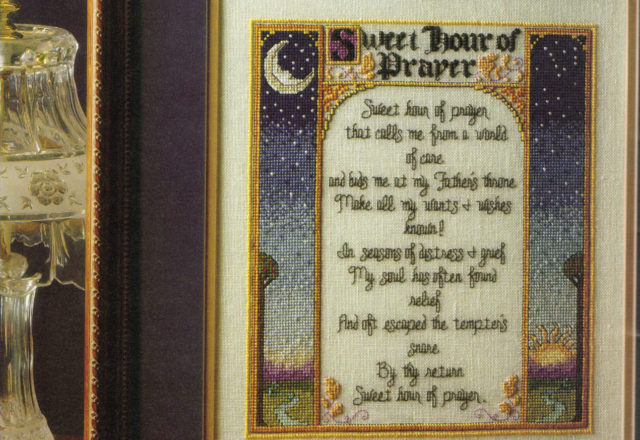 Sweet Hour of
Prayer
Sweet hour of prayer
that calls me from a world
of care
and bids me at my Father's throne
Make all my wants & wishes
known!
In seasons of distress & grief
My soul has often found
relief
And oft escaped the tempter's
snare
By thy return
Sweet hour of prayer.